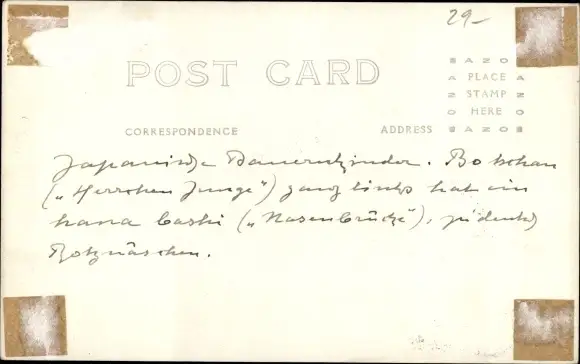 29-
POST CARD
AZO
PLACE
STAMP
HERE
AZO
CORRESPONDENCE ADDRESS
Japanische Bauernkinder. Botschan
("Herrchen Junge") ganz links hat ein
hana bashi ("Nasenbrücke"), zu deutsch
Rotznäschen.